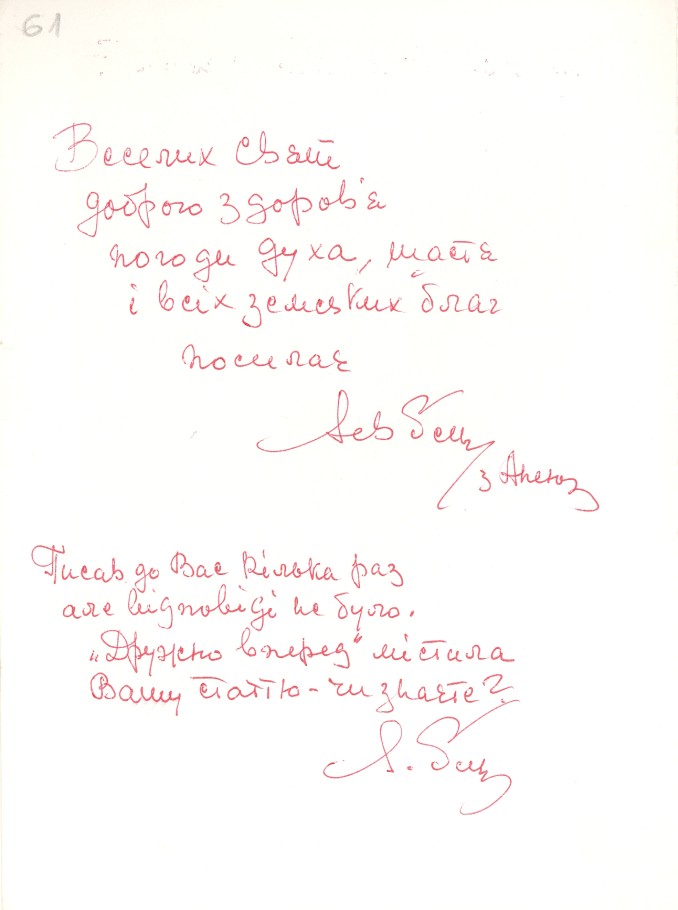 61
Веселих Свят
доброго здоров'я
погоди духа, щастя
і всіх земських благ
посилає
Лев Бац
з
Писав до Вас кілька раз
але відповіді не було.
„Дружно вперед“ містила
Вашу статтю – чи знаєте?
Л. Бац